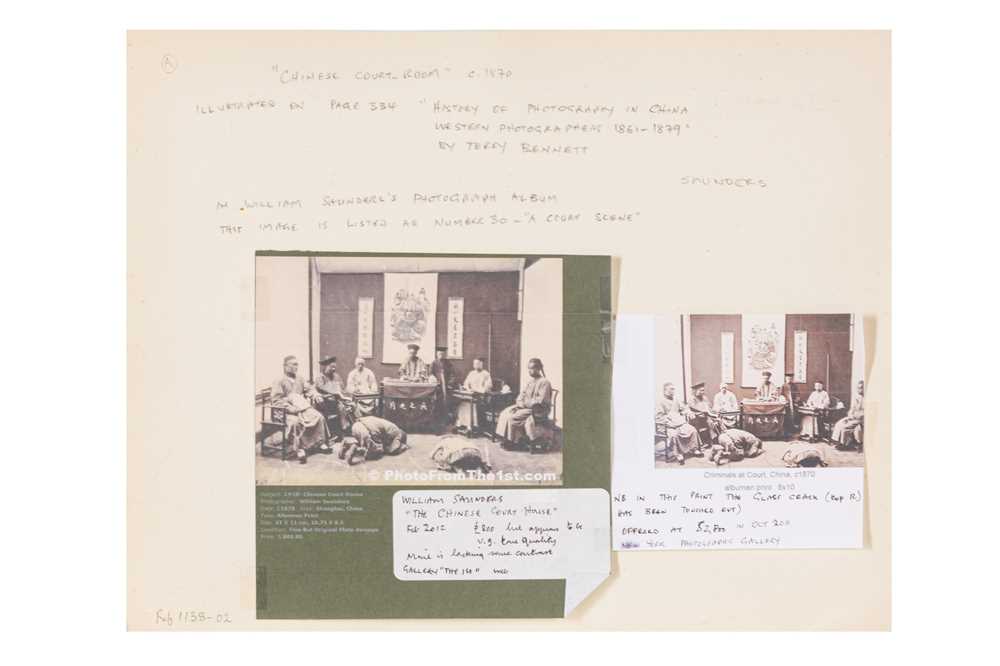 A
"CHINESE COURT ROOM" c. 1870
ILLUSTRATED ON PAGE 334 "HISTORY OF PHOTOGRAPHY IN CHINA
WESTERN PHOTOGRAPHERS 1861-1879"
BY TERRY BENNETT
SAUNDERS
IN WILLIAM SAUNDERS'S PHOTOGRAPH ALBUM
THIS IMAGE IS LISTED AS NUMBER 30 - "A COURT SCENE"
© PhotoFromThe1st.com
Chinese Court House
William Saunders
Shanghai, China
Albumen Print
WILLIAM SAUNDERS
"THE CHINESE COURT HOUSE"
Feb 2012 £800 but appears to be
v.g. tone quality
Mine is lacking some contrast
GALLERY "THE 1st" web
Criminals at Court, China, c1870
albumen print 8x10
NB IN THIS PRINT THE GLASS CRACK (top R)
HAS BEEN TOUCHED OUT)
OFFERED AT $2,800 IN OCT 2011
NEW YORK PHOTOGRAPHS GALLERY
Ref 1138-02